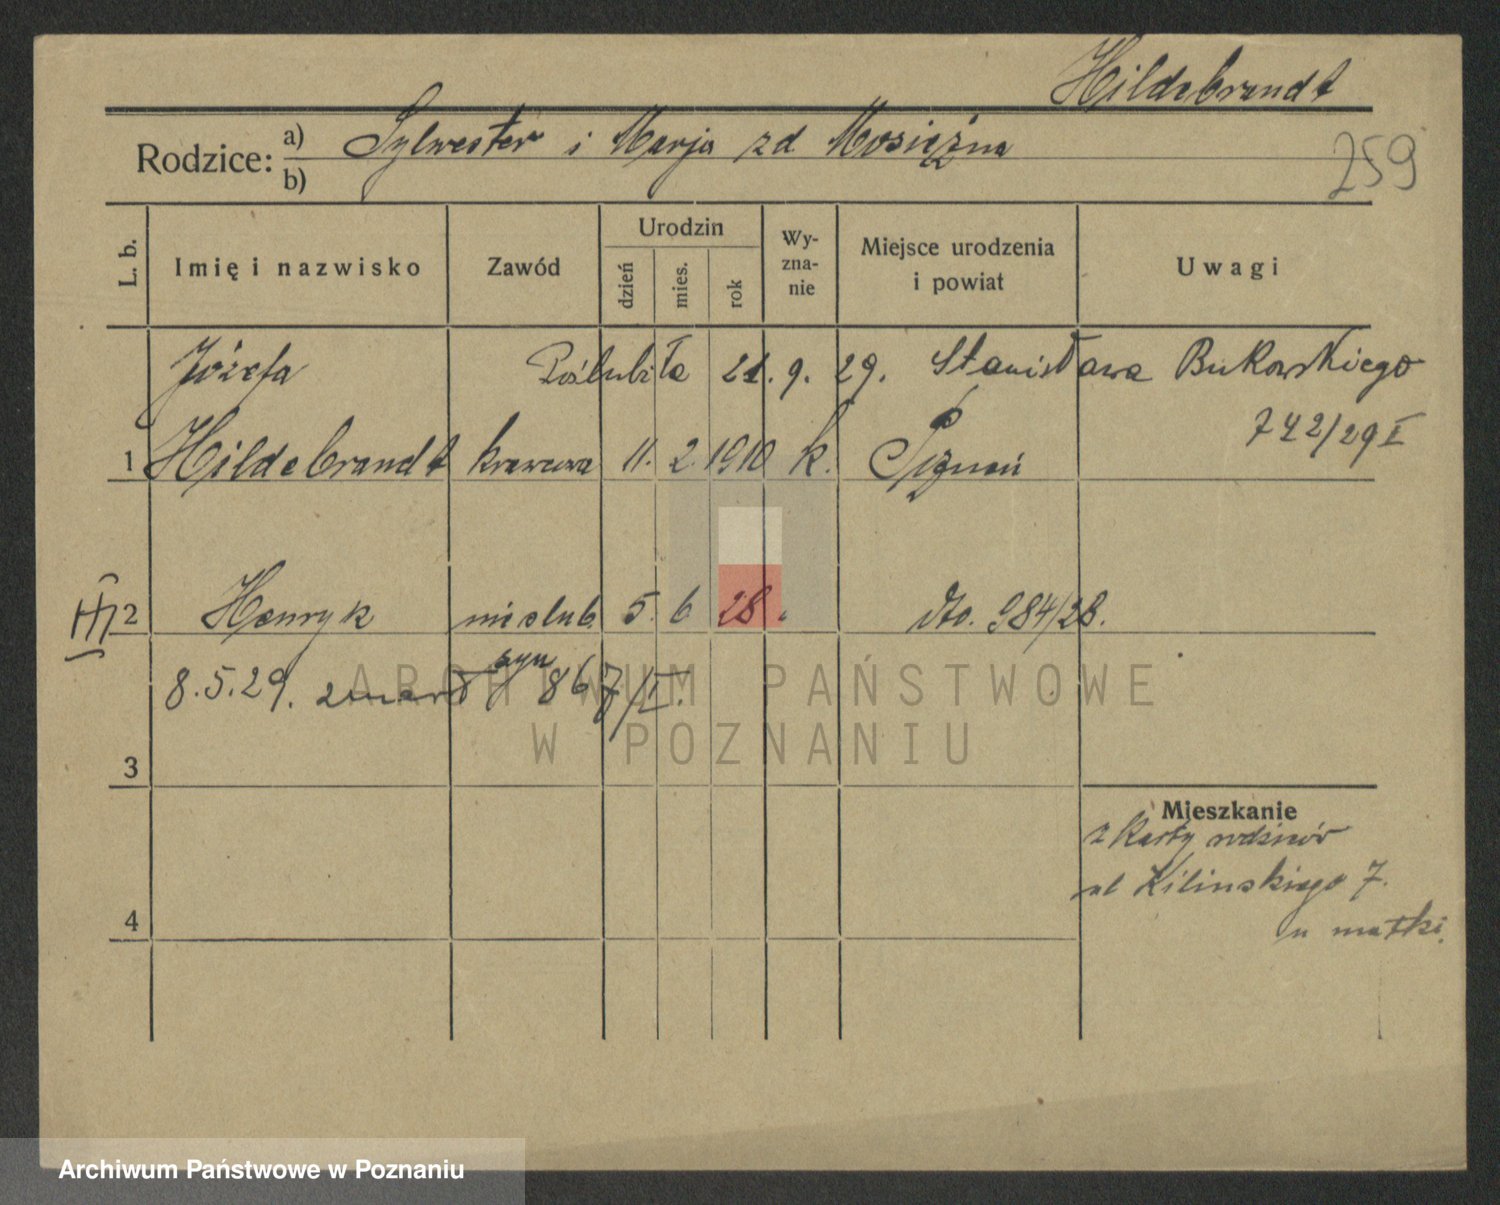 Hildebrandt
Rodzice: a) Sylwester i Marja zd Mosiężna
b)
259
L. b.
Imię i nazwisko
Zawód
Urodzin
dzień
mies.
rok
Wy-
zna-
nie
Miejsce urodzenia
i powiat
Uwagi
Józefa Poślubiła 21. 9. 29. Stanisława Bukowskiego
742/29 I
1 Hildebrandt krawcowa 11. 2. 1910 k. Poznań
2 Henryk nieślub. 5. 6. 28. dto. 984/28.
syn
8.5.29. zmarł 867/I.
ARCHIWUM PAŃSTWOWE
W POZNANIU
3
Mieszkanie
z karty rodziców
ul Kilinskiego 7.
u matki.
4
Archiwum Państwowe w Poznaniu